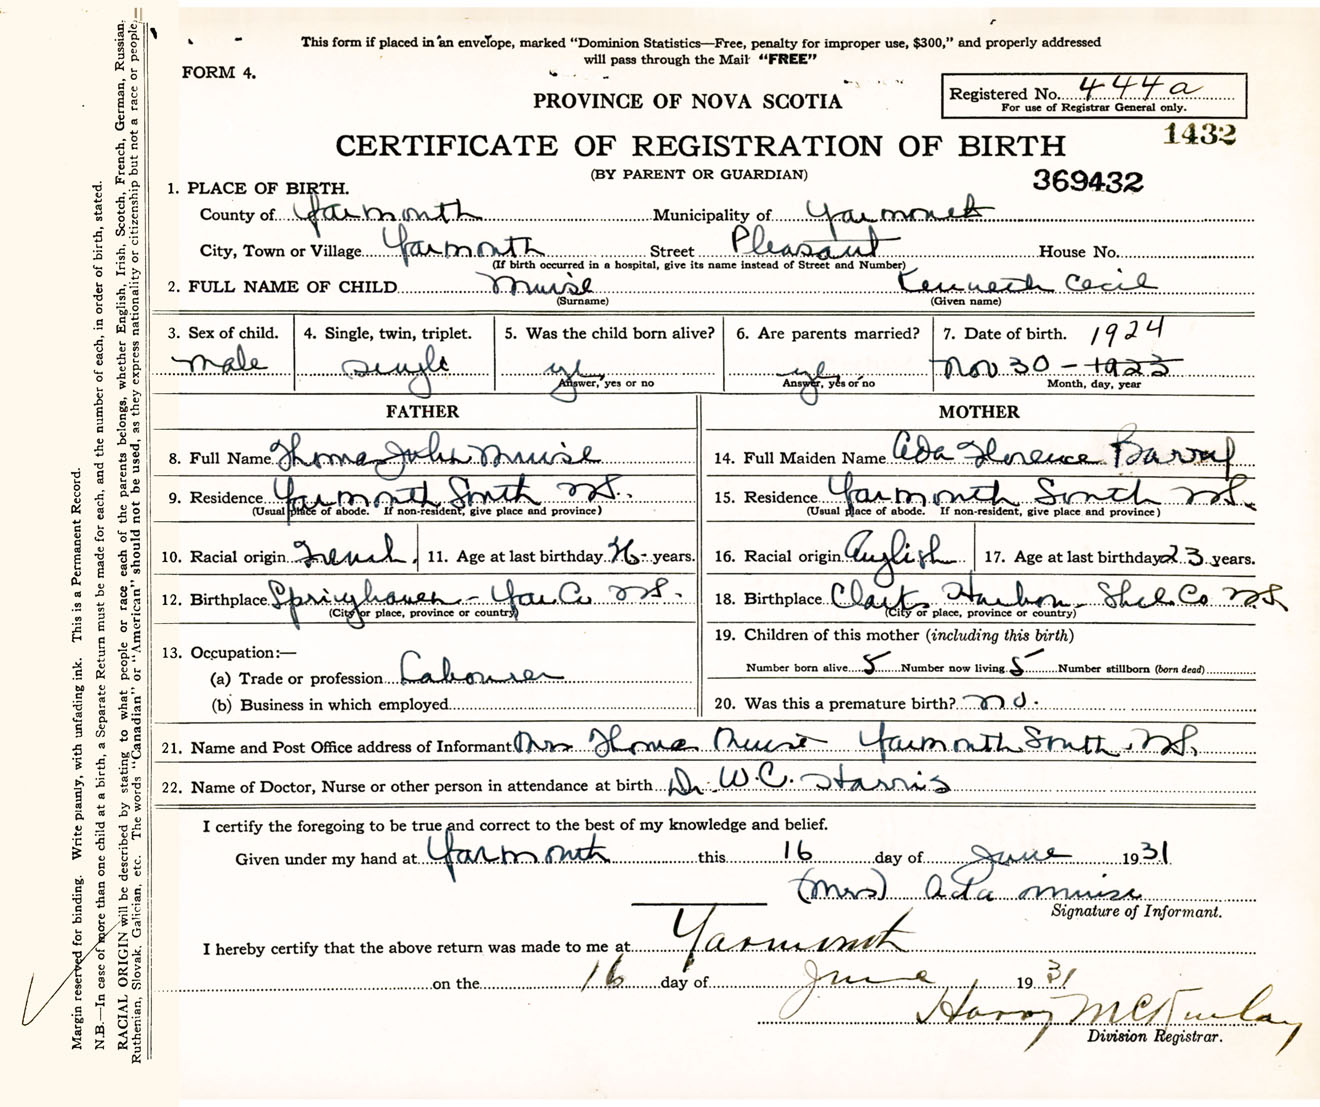 This form if placed in an envelope, marked "Dominion Statistics—Free, penalty for improper use, $300," and properly addressed
will pass through the Mail "FREE"
FORM 4.
Registered No. 444a
For use of Registrar General only.
PROVINCE OF NOVA SCOTIA
1432
CERTIFICATE OF REGISTRATION OF BIRTH
(BY PARENT OR GUARDIAN)
369432
1. PLACE OF BIRTH.
County of Yarmouth Municipality of Yarmouth
City, Town or Village Yarmouth Street Pleasant House No.
(If birth occurred in a hospital, give its name instead of Street and Number)
2. FULL NAME OF CHILD Muise Kenneth Cecil
(Surname) (Given name)
3. Sex of child. 4. Single, twin, triplet. 5. Was the child born alive? 6. Are parents married? 7. Date of birth. 1924
male single yes yes Nov 30 - 1923
Answer, yes or no Answer, yes or no Month, day, year
FATHER MOTHER
8. Full Name Thomas John Muise 14. Full Maiden Name Ada Florence
9. Residence Yarmouth South N.S. 15. Residence Yarmouth South N.S.
(Usual place of abode. If non-resident, give place and province) (Usual place of abode. If non-resident, give place and province)
10. Racial origin French. 11. Age at last birthday years. 16. Racial origin English 17. Age at last birthday 23 years.
12. Birthplace Springhaven - Yar Co N.S. 18. Birthplace Clarks Harbour Shel. Co N.S.
(City or place, province or country) (City or place, province or country)
13. Occupation:— 19. Children of this mother (including this birth)
(a) Trade or profession Labourer Number born alive 5 Number now living 5 Number stillborn (born dead)
(b) Business in which employed 20. Was this a premature birth? no.
21. Name and Post Office address of Informant Mrs Thomas Muise Yarmouth South, N.S.
22. Name of Doctor, Nurse or other person in attendance at birth Dr. W.C. Harris
I certify the foregoing to be true and correct to the best of my knowledge and belief.
Given under my hand at Yarmouth this 16 day of June 1931
(Mrs) Ada Muise
Signature of Informant.
I hereby certify that the above return was made to me at Yarmouth
on the 16 day of June 1931
Harry McKinlay
Division Registrar.
Margin reserved for binding. Write plainly, with unfading ink. This is a Permanent Record.
N.B.—In case of more than one child at a birth, a Separate Return must be made for each, and the number of each, in order of birth, stated.
RACIAL ORIGIN will be described by stating to what people or race each of the parents belongs, whether English, Irish, Scotch, French, German, Russian,
Ruthenian, Slovak, Galician, etc. The words "Canadian" or "American" should not be used, as they express nationality or citizenship but not a race or people.